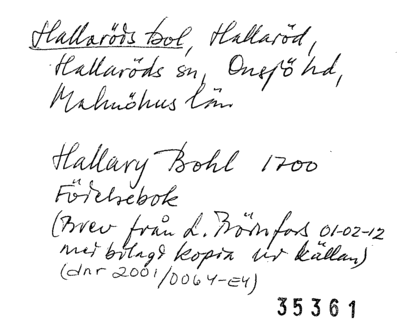 Hallaröds bol, Hallaröd,
Hallaröds sn, Onsjö hd,
Malmöhus län
Hallary Bohl 1700
Födelsebok
(Brev från L. Börnfors 01-02-12
med bilagd kopia ur källan)
(dnr 2001/0064-E4)
35361